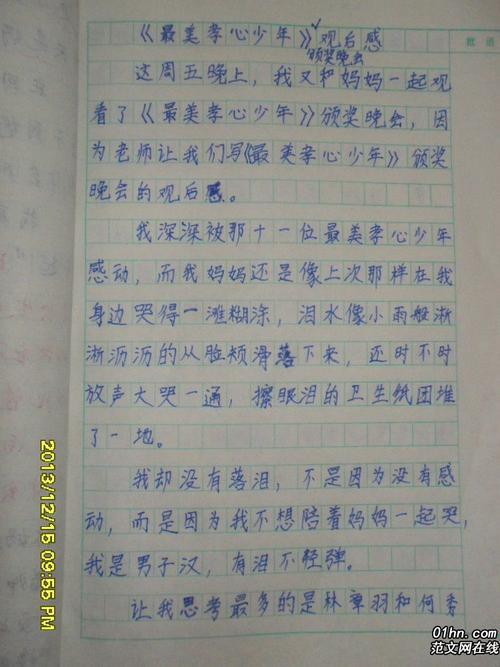 《最美孝心少年》观后感
颁奖晚会
批语
这周五晚上，我又和妈妈一起观
看了《最美孝心少年》颁奖晚会，因
为老师让我们写《最美孝心少年》颁奖
晚会的观后感。
我深深被那十一位最美孝心少年
感动，而我妈妈还是像上次那样在我
身边哭得一滩糊涂，泪水像小雨般淅
淅沥沥的从脸颊滑落下来，还时不时
放声大哭一通，擦眼泪的卫生纸团堆
了一地。
我却没有落泪，不是因为没有感
动，而是因为我不想陪着妈妈一起哭，
我是男子汉，有泪不轻弹。
让我思考最多的是林章羽和何秀
2013/12/15 09:55 PM
01hn.com
范文网在线